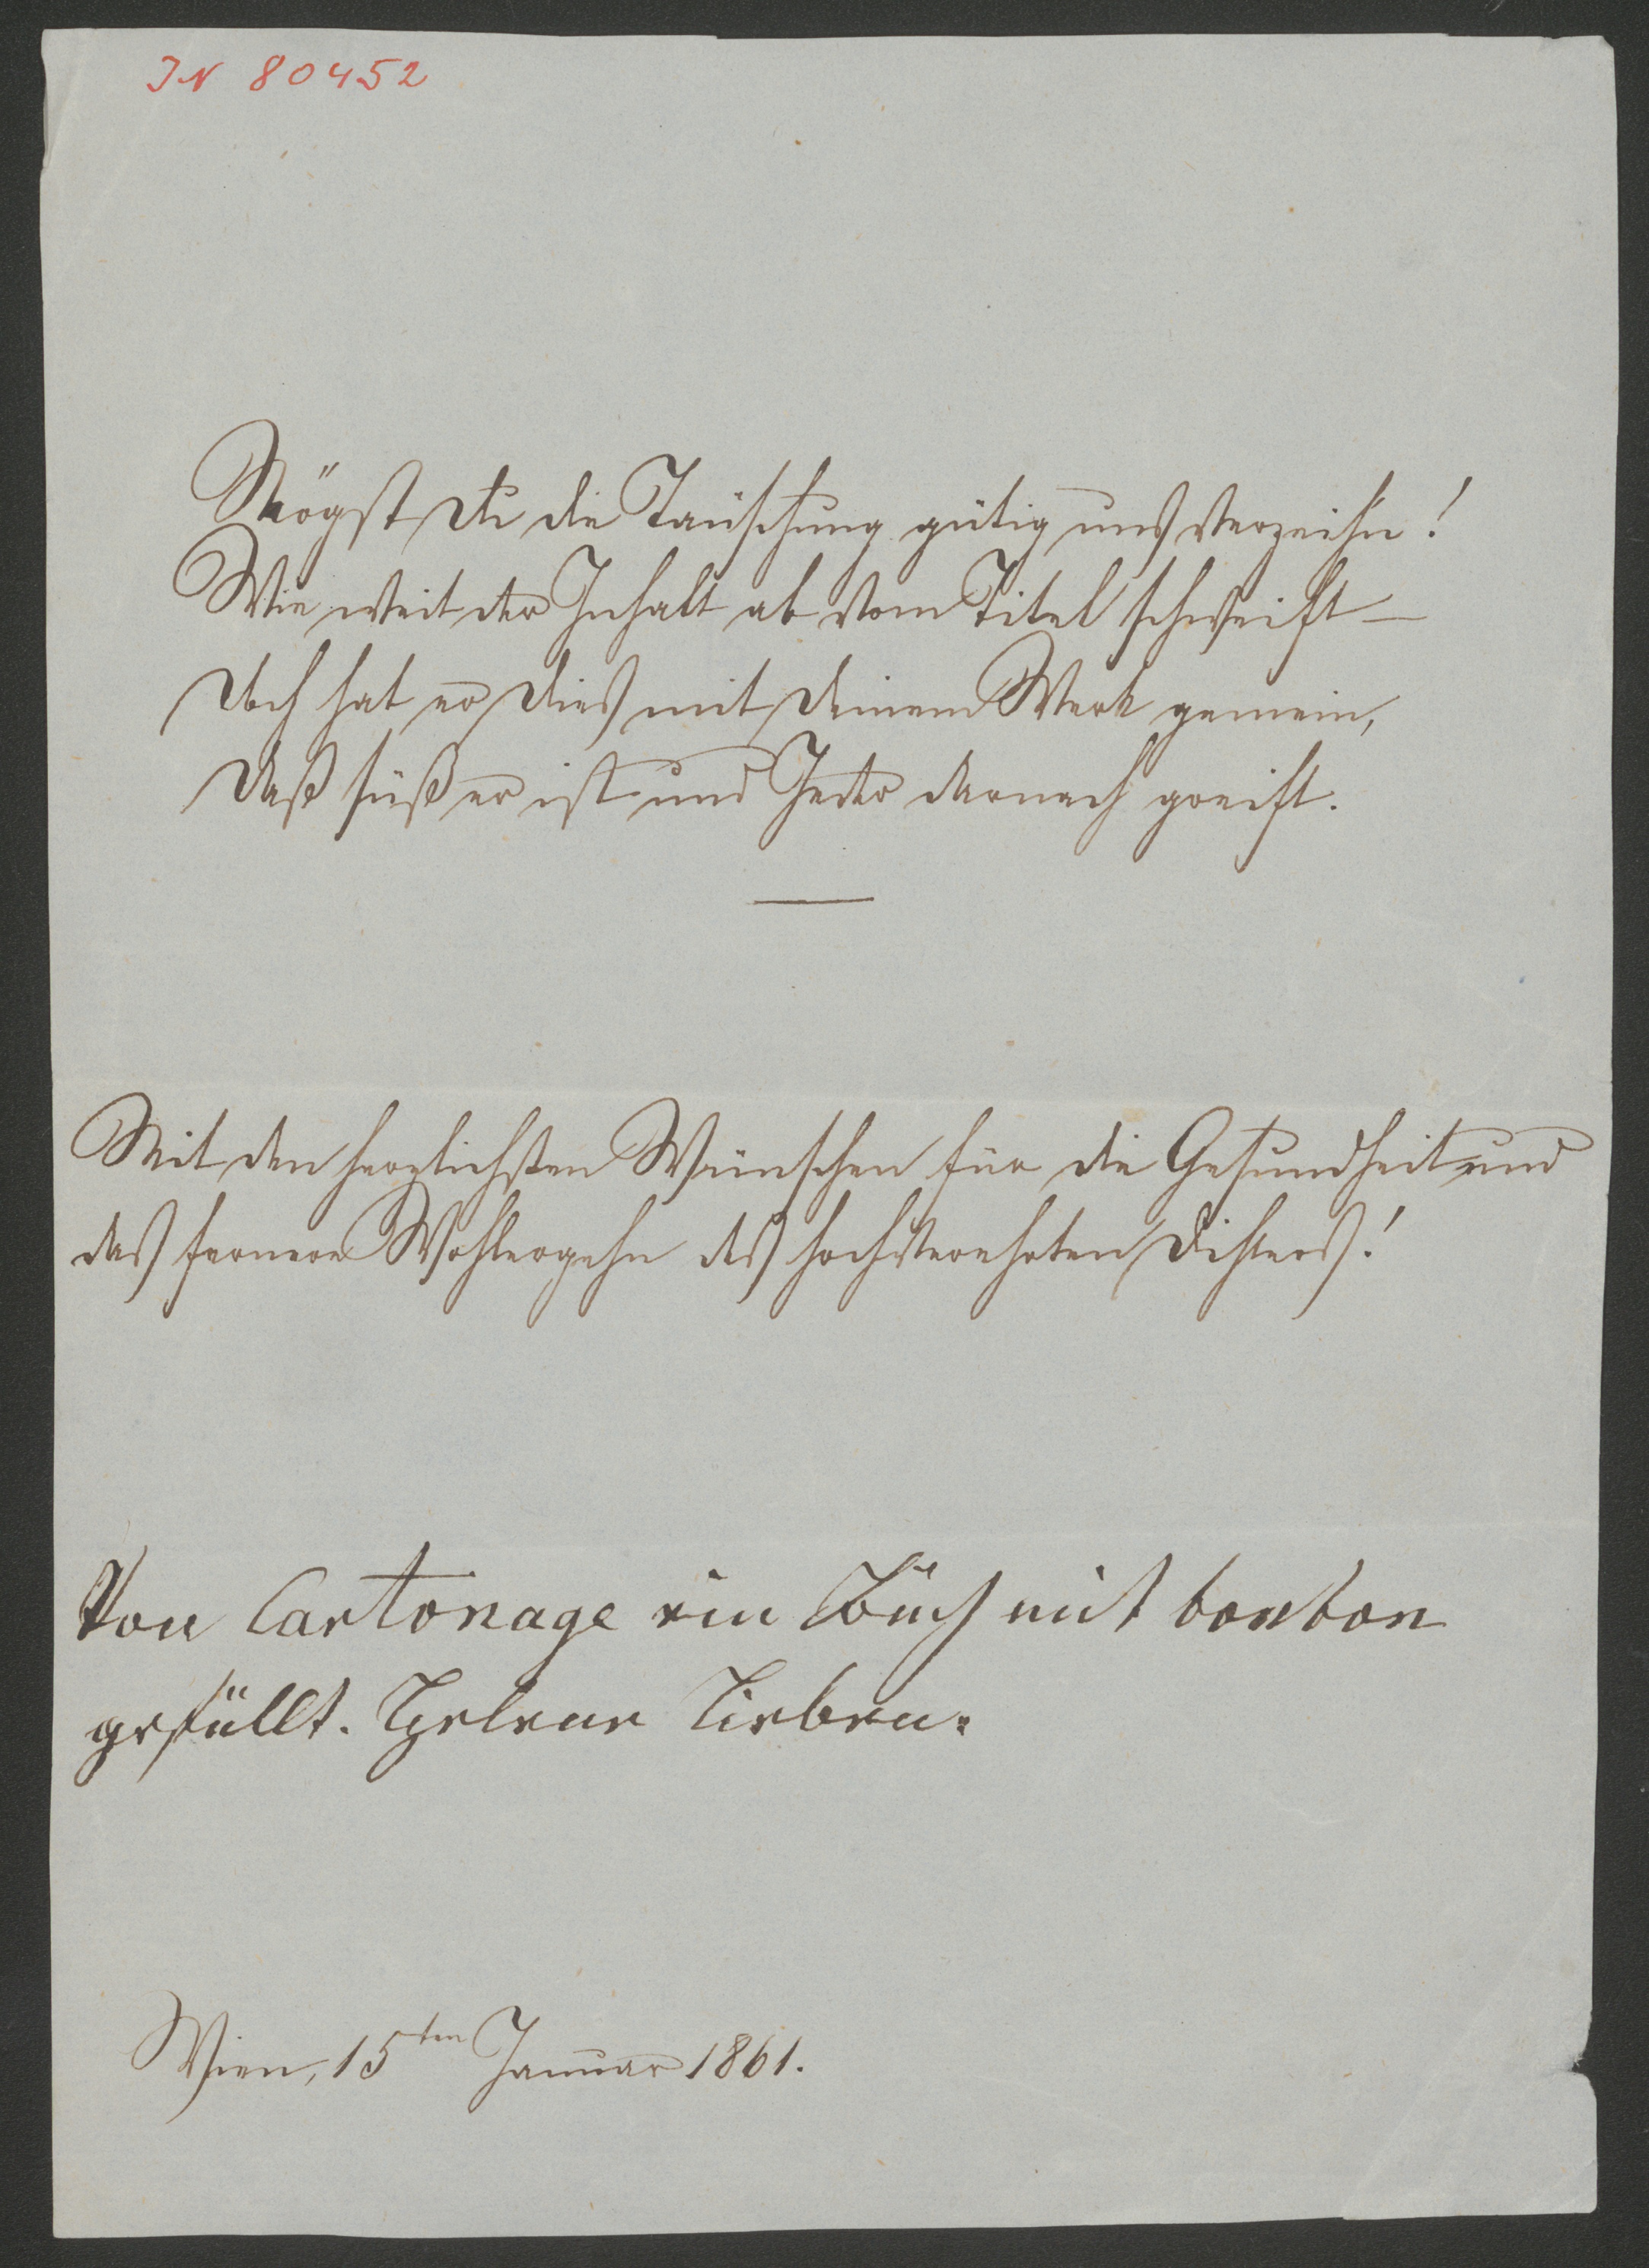 IN 80452
Mögst Du die Täuschung gütig uns verzeihn!
Wie weit der Inhalt ab vom Titel schweift –
Doch hat er dies mit Deinem Werk gemein,
Daß süß er ist und Jeder darnach greift.
Mit den herzlichsten Wünschen für die Gesundheit und
das fernere Wohlergehn des hochverehrten Dichters!
Von Cartonage ein Buch mit bonbon
gefüllt. Helene Lieben.
Wien, 15ten Januar 1861.